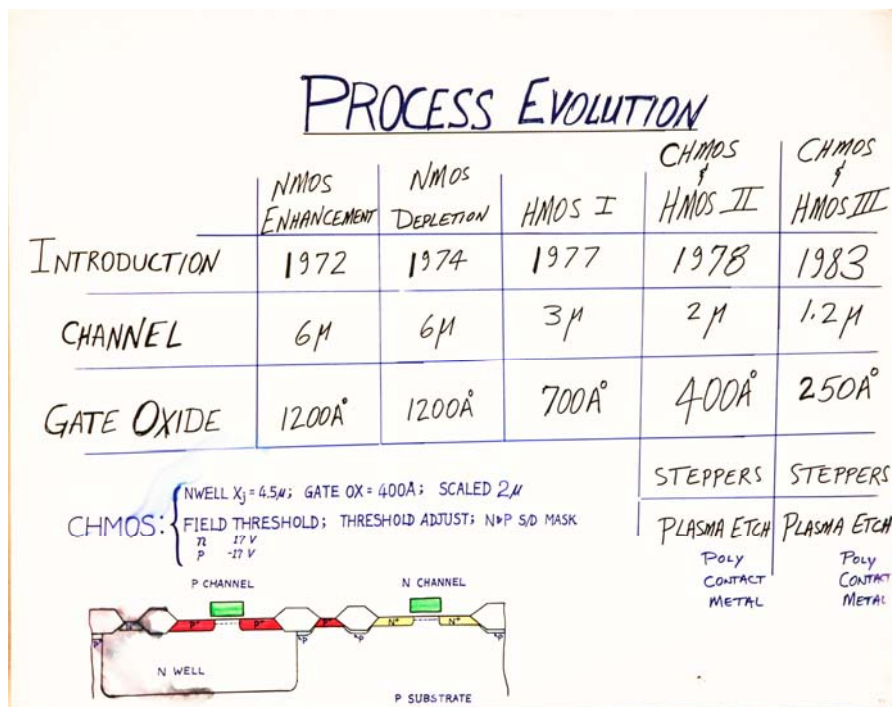 PROCESS EVOLUTION
NMOS ENHANCEMENT
NMOS DEPLETION
HMOS I
CHMOS & HMOS II
CHMOS & HMOS III
INTRODUCTION 1972 1974 1977 1978 1983
CHANNEL 6μ 6μ 3μ 2μ 1.2μ
GATE OXIDE 1200Å 1200Å 700Å 400Å 250Å
STEPPERS STEPPERS
PLASMA ETCH PLASMA ETCH
POLY POLY
CONTACT CONTACT
METAL METAL
CHMOS:
NWELL Xj = 4.5μ; GATE OX = 400A; SCALED 2μ
FIELD THRESHOLD; THRESHOLD ADJUST; N&P S/D MASK
n 17 V
P -17 V
P CHANNEL N CHANNEL
P+ P+ P+ N+ N+
P P P P
N WELL
P SUBSTRATE